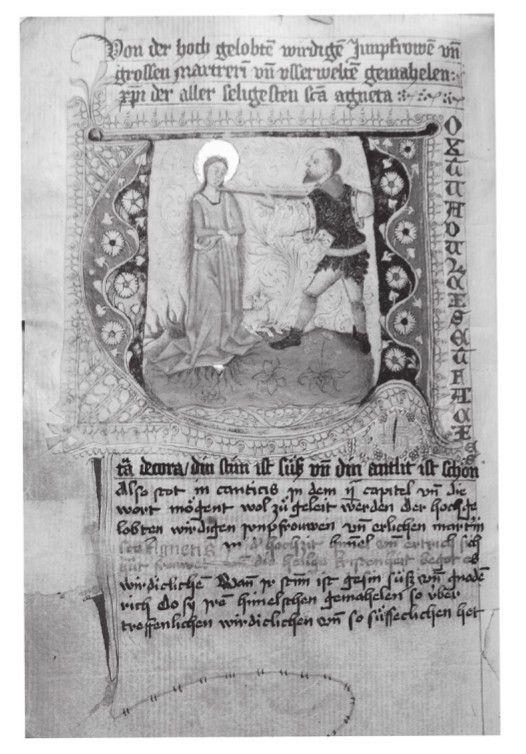 Von der hoch gelobtē wirdigē Junpfrowē vñ
grossen martreri vñ vsserweltē gemahelen
xpi der aller seligesten scā agneta
OX TUA DULCES FACIE
tā decora / din stim ist sůß vñ din antlit ist schön
Also stot in canticis jn dem ij capitel vñ die
wort mögent wol zů geleit werden der hochge
lobten wirdigen jonpfrouwen vñ erlichen martrin
Agnetis hochzit himel vñ ertrich sich
vñ die heilige kristenheit begot es
wirdicliche Wañ jr stim ist gesin sůß vñ gnadē
rich do sy jrē himelschen gemahelen so über
treffenlichen wirdiclichen vñ so süsseclichen het